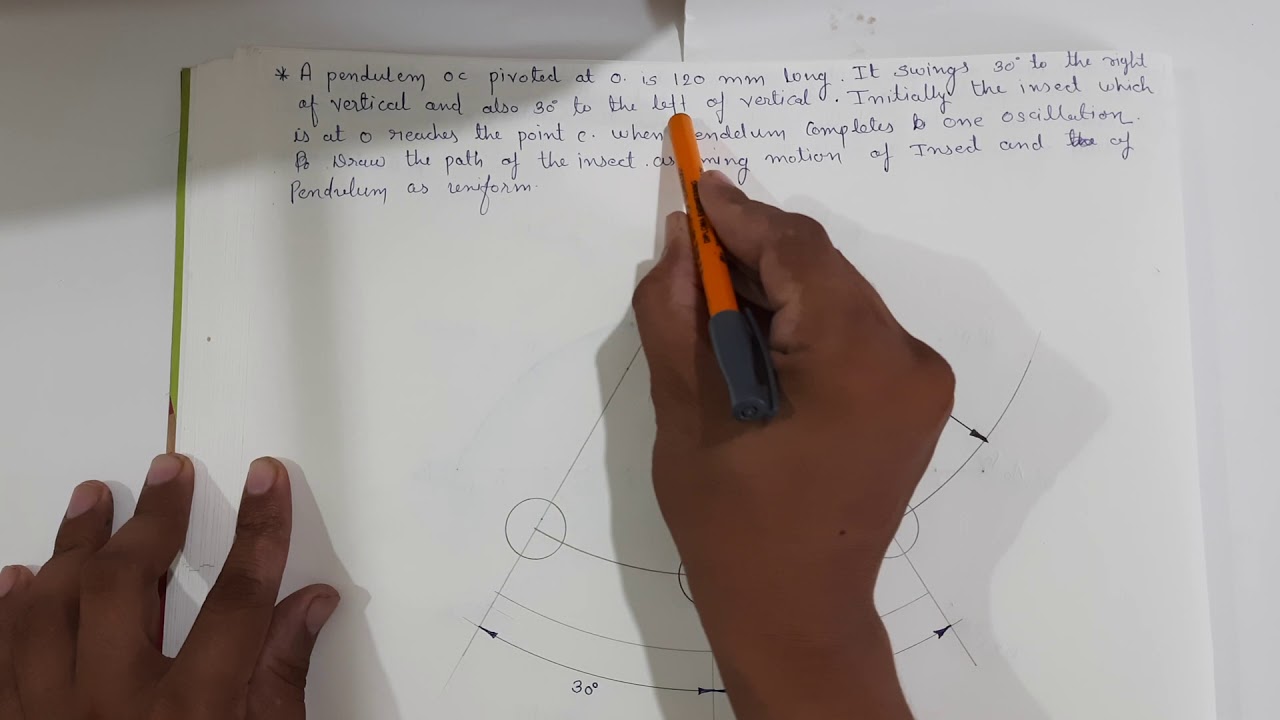 * A pendulem OC pivoted at O. is 120 mm long. It swings 30° to the right
of vertical and also 30° to the left of vertical. Initially the insect which
is at O reaches the point C. when endelum completes one oscillation.
Draw the path of the insect. as ming motion of Insect and of
Pendulum as uniform.
30°